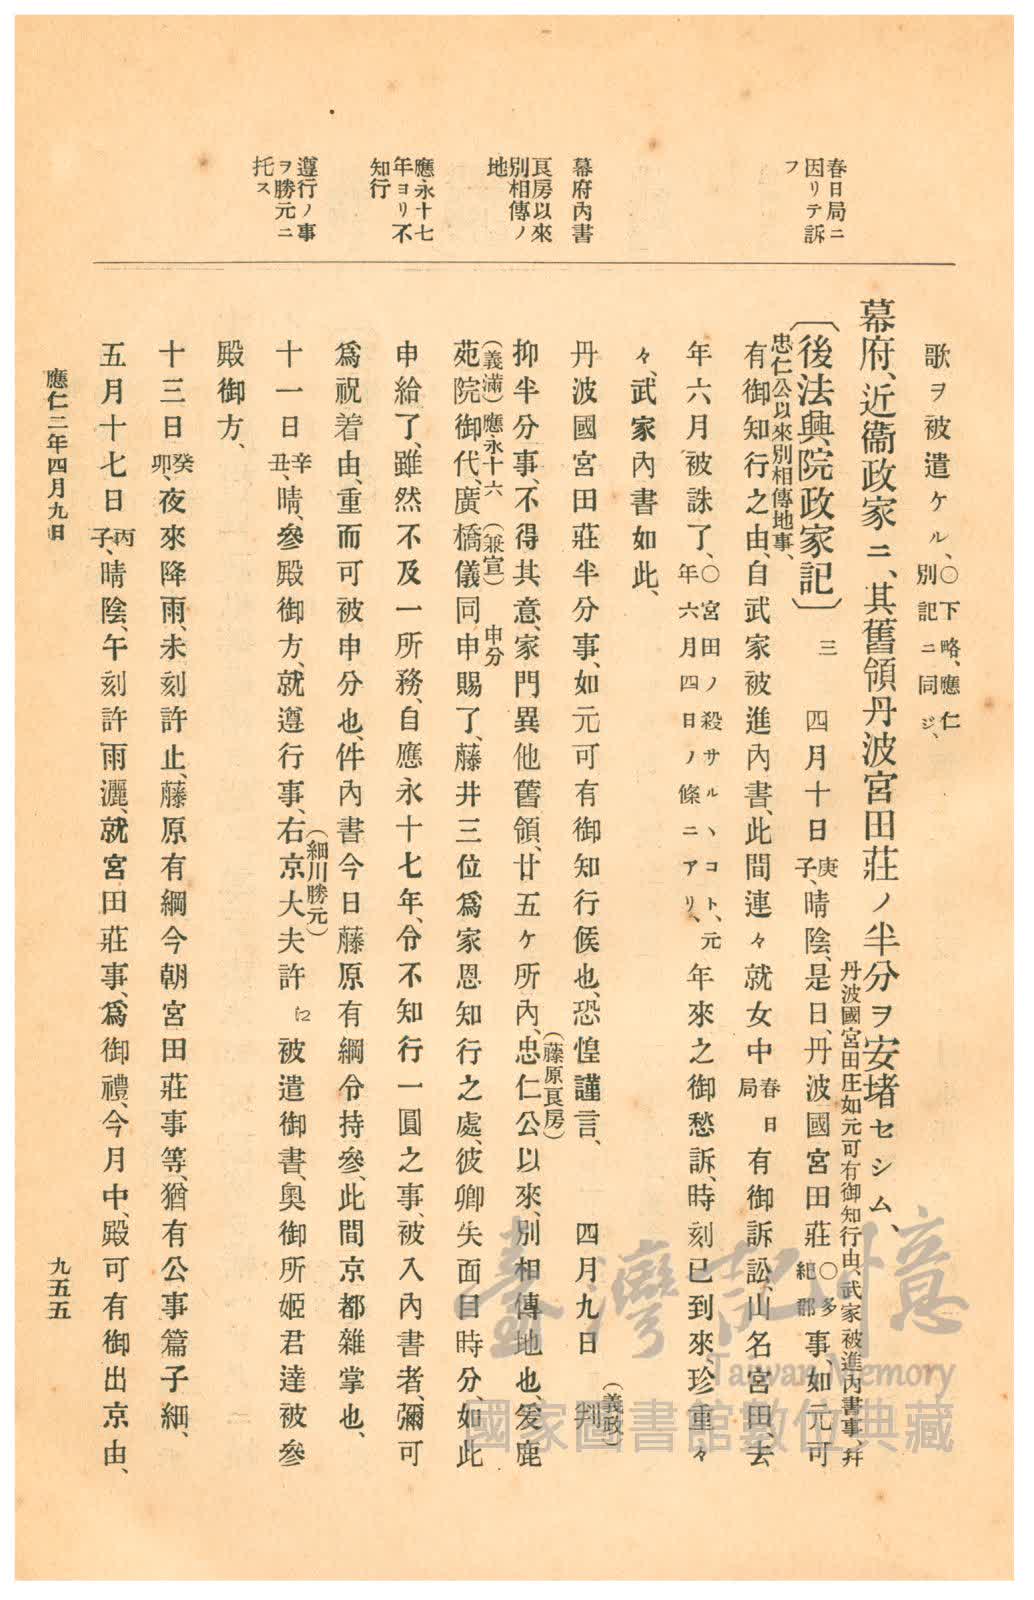 春日局ニ
因リテ訴
フ
幕府內書
良房以來
別相傳ノ
地
應永十七
年ヨリ不
知行
遵行ノ事
ヲ勝元ニ
托ス
歌ヲ被遣ケル、〇下略、應仁別記ニ同ジ、
幕府、近衞政家ニ、其舊領丹波宮田莊ノ半分ヲ安堵セシム、
〔後法興院政家記〕三 四月十日、庚子、晴陰、是日、丹波國宮田莊〇多紀郡事、如元可
丹波國宮田庄如元可有御知行由、武家被進內書事、幷
忠仁公以來別相傳地事、
有御知行之由、自武家被進內書、此間連々就女中春日局有御訴訟、山名宮田、去
年六月被誅了、〇宮田ノ殺サルヽコト、元年六月四日ノ條ニアリ、年來之御愁訴、時刻已到來、珍重々
々、武家內書如此、
丹波國宮田莊半分事、如元可有御知行候也、恐惶謹言、
四月九日 判(義政)
抑半分事、不得其意、家門異他舊領、廿五ケ所內、忠仁公(藤原良房)以來、別相傳地也、爰鹿
苑院(義滿)御代、應永十六廣橋(兼宣)儀同申分申賜了、藤井三位爲家恩知行之處、彼卿失面目時分、如此
申給了、雖然不及一所務、自應永十七年、令不知行一圓之事、被入內書者、彌可
爲祝着由、重而可被申分也、件內書今日藤原有綱令持參、此間京都雜掌也、
十一日、辛丑、晴、參殿御方、就遵行事、右京大夫(細川勝元)許江被遣御書、奧御所姬君達被參
殿御方、
十三日、癸卯、夜來降雨、未刻許止、藤原有綱今朝宮田莊事等、猶有公事篇子細、
五月十七日、丙子、晴陰、午刻許雨灑、就宮田莊事、爲御禮、今月中、殿可有御出京由、
應仁二年四月九日
九五五
臺灣記憶
Taiwan Memory
國家圖書館數位典藏